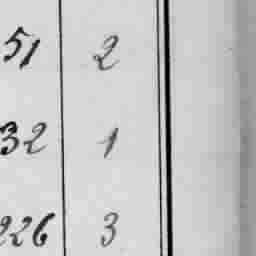 51 2
32 1
226 3